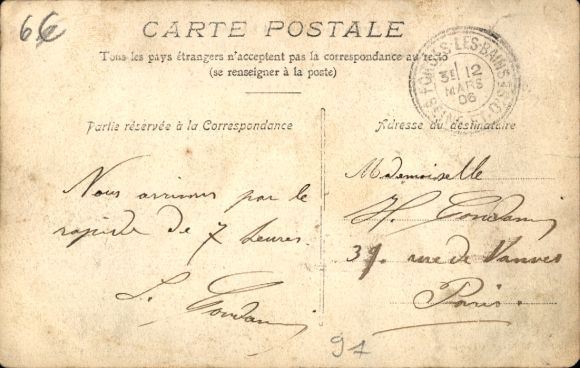 6€
CARTE POSTALE
Tous les pays étrangers n'acceptent pas la correspondance au recto
(se renseigner à la poste)
FORGES-LES-BAINS
3E 12
MARS
06
SEINE-ET-OISE
Partie réservée à la Correspondance
Adresse du destinataire
Nous arrivons par le
rapide de 7 heures.
Mademoiselle
H.
39 rue de Vanves
Paris.
91